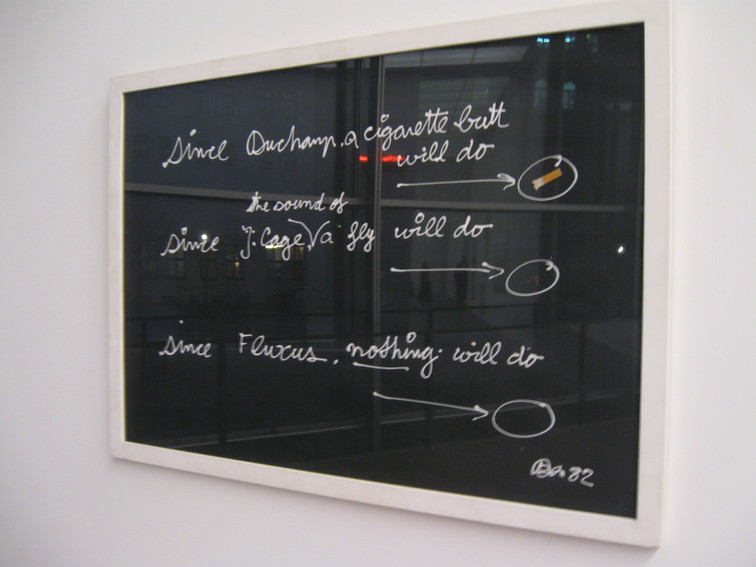 since Duchamp, a cigarette butt
will do
the sound of
since J. Cage, a fly will do
since Fluxus, nothing will do
Ben 82